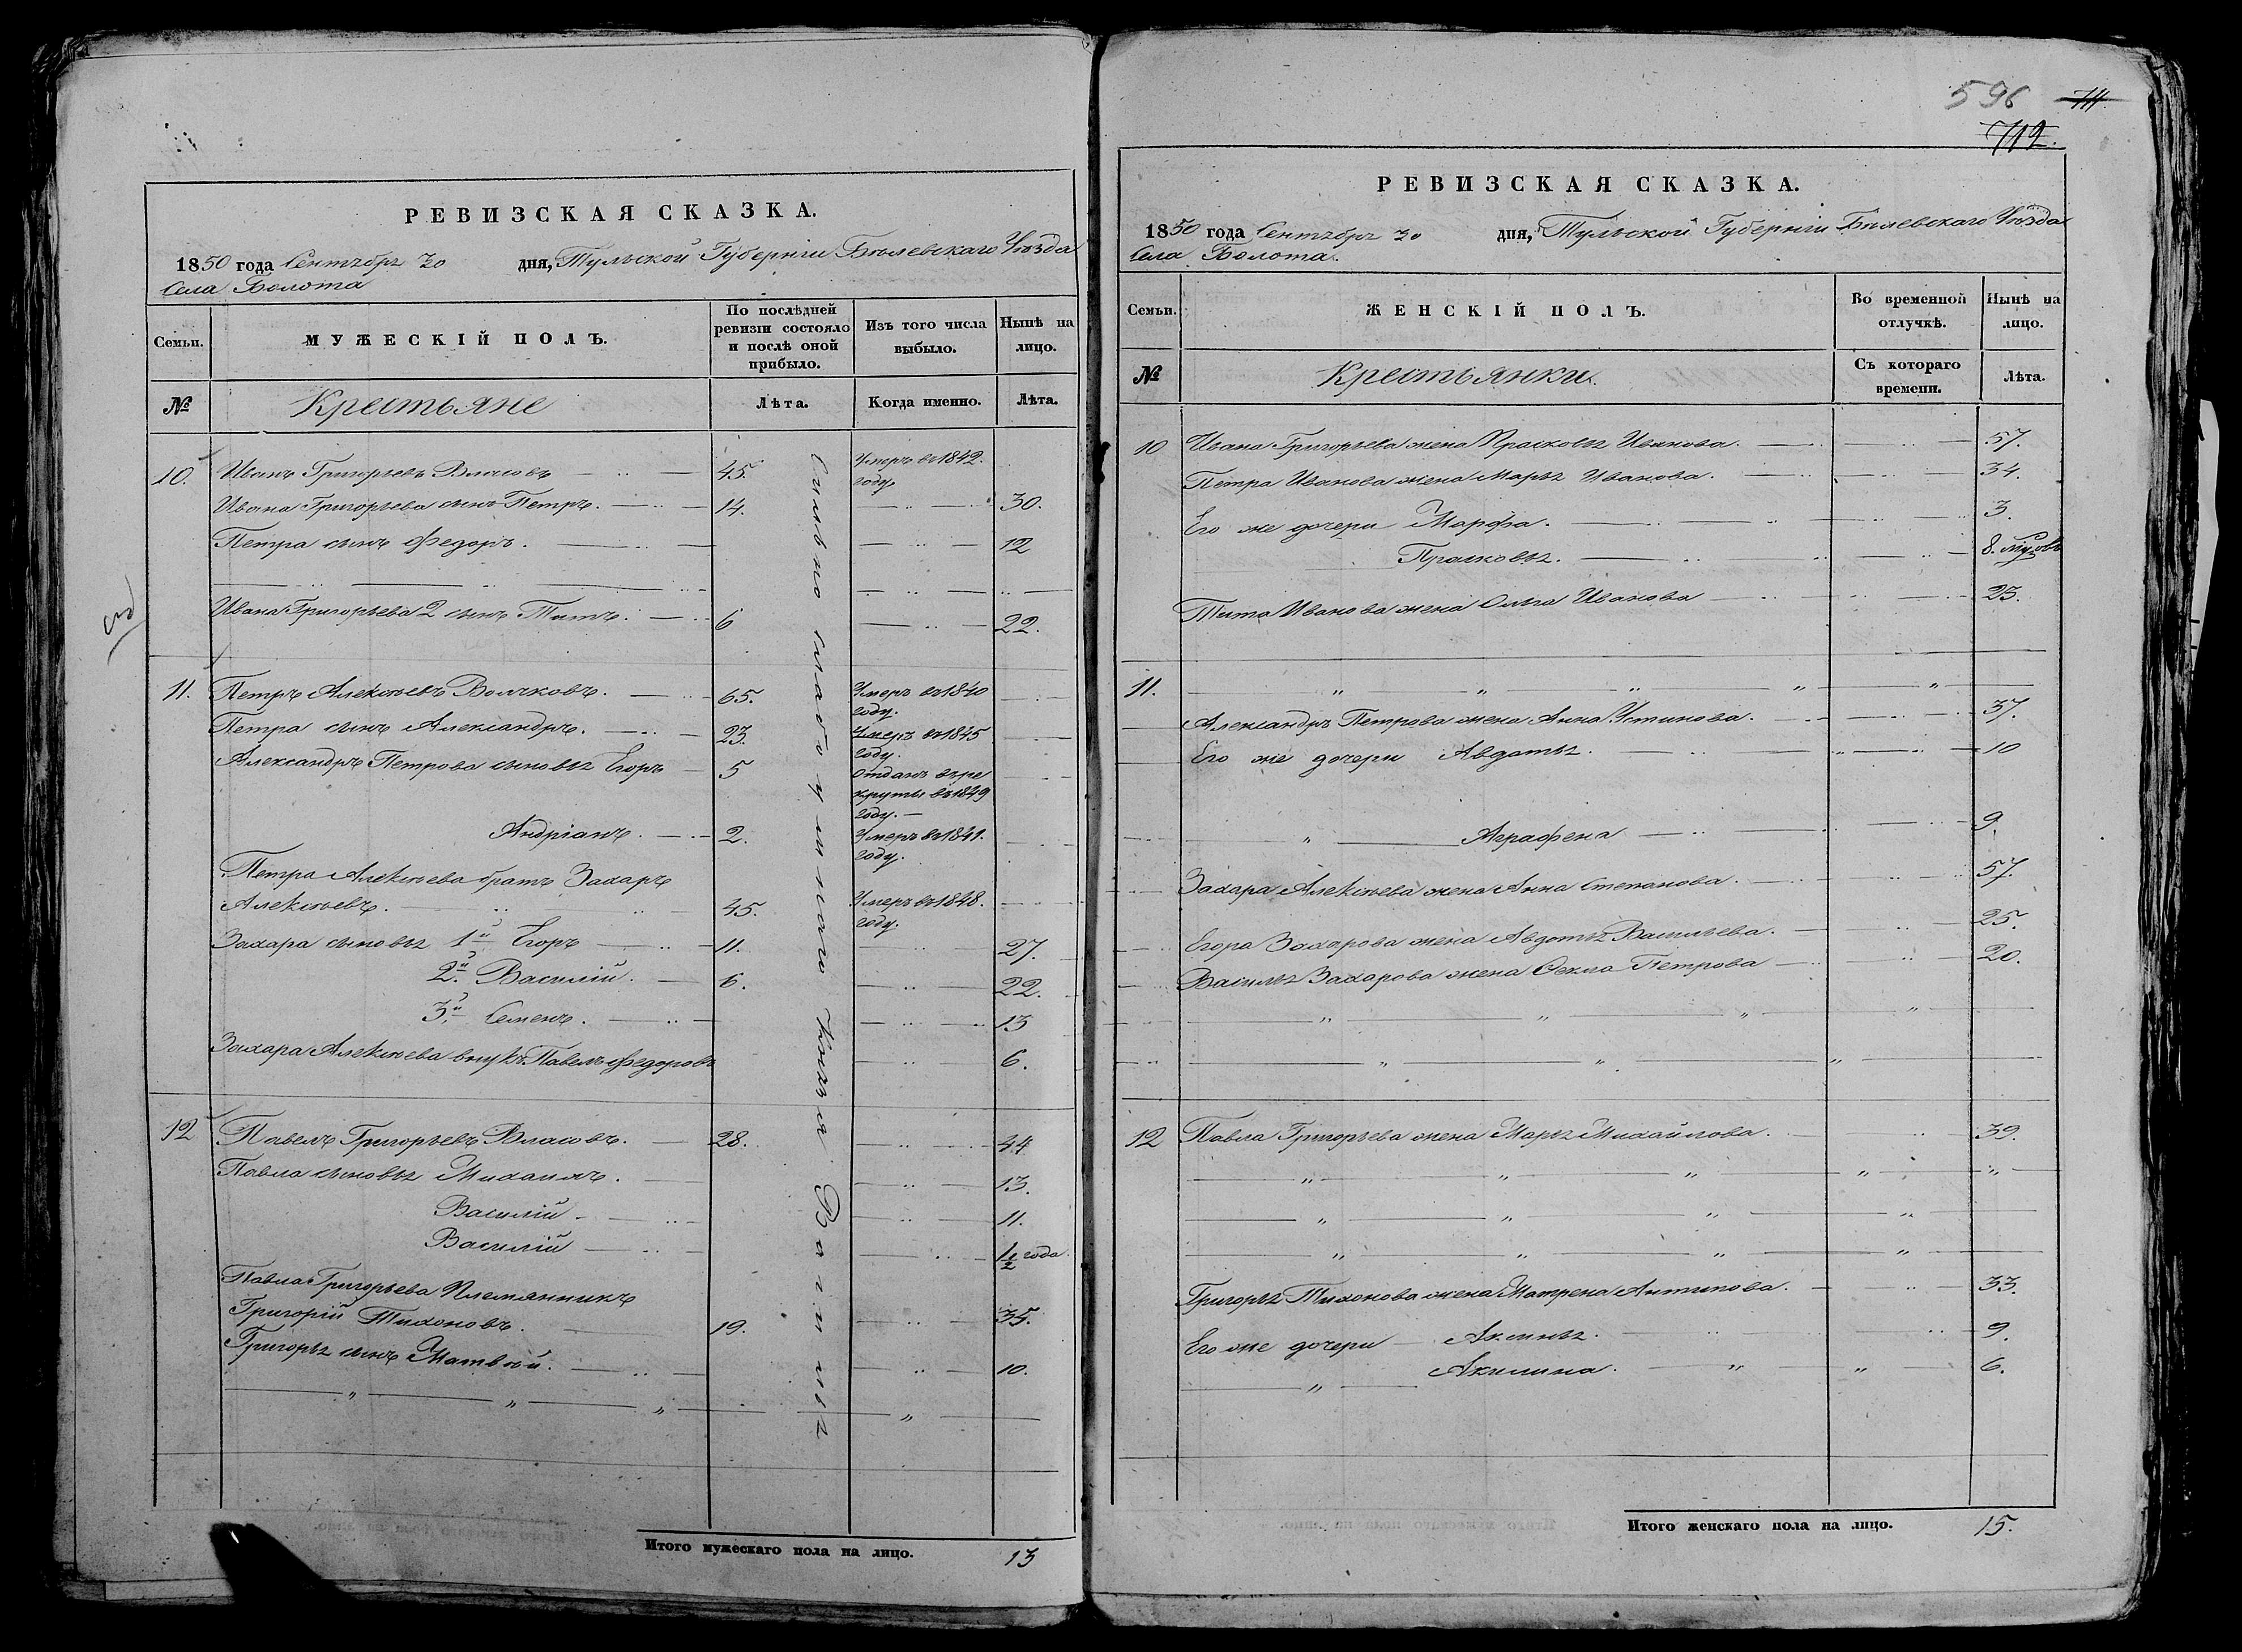 596 711.
712.
РЕВИЗСКАЯ СКАЗКА.
1850 года Сентября 30 дня, Тульской Губерніи Бѣлевскаго Уѣзда
Села Болота
Семьи.
МУЖЕСКІЙ ПОЛЪ.
По послѣдней ревизіи состояло и послѣ оной прибыло.
Изъ того числа выбыло.
Нынѣ на лицо.
№
Крестьяне
Лѣта.
Когда именно.
Лѣта.
10. Иванъ Григорьевъ Власовъ 45. Умеръ в 1842. году
Ивана Григорьева сынъ Петръ. 14. 30.
Петра сынъ Федоръ. 12
Ивана Григорьева 2 сынъ Титъ. 6 22.
11. Петръ Алексѣевъ Волчковъ. 65. Умеръ в 1840 году.
Петра сынъ Александръ. 23. Умеръ в 1845 году.
Александръ Петрова сыновья Егоръ 5 отданъ въ рекруты в 1849 году.
Андріанъ. 2. Умеръ в 1841. году.
Петра Алексѣева братъ Захаръ
Алексѣевъ. 45. Умеръ в 1848. году.
Захара сыновья 1й Егоръ 11. 27.
2й. Василій. 6. 22.
3й Семенъ. 13
Захара Алексѣева внукъ Павелъ Федоровъ 6.
12 Павелъ Григорьевъ Власовъ. 28. 44
Павла сыновья Михаилъ. 13.
Василій 11.
Василій 1/2 года.
Павла Григорьева Племянникъ
Григорій Тихоновъ. 19. 35.
Григорья сынъ Матвѣй. 10.
Князя
Итого мужескаго пола на лицо. 13
РЕВИЗСКАЯ СКАЗКА.
1850 года Сентября 30 дня, Тульской Губерніи Бѣлевскаго Уѣзда
Села Болота.
Семьи.
ЖЕНСКІЙ ПОЛЪ.
Во временной отлучкѣ.
Нынѣ на лицо.
№
Крестьянки.
Съ котораго времени.
Лѣта.
10 Ивана Григорьева жена Прасковья Иванова. 57.
Петра Иванова жена Марья Иванова. 34.
Его же дочери Марфа. 3.
Прасковья. 8.
Тита Иванова жена Ольга Иванова 23.
11.
Александръ Петрова жена Анна Устинова. 37.
Его же дочери Авдотья. 10
Аграфена 9.
Захара Алексѣева жена Анна Степанова. 57.
Егора Захарова жена Авдотья Васильева. 25.
Василья Захарова жена Фекла Петрова 20.
12 Павла Григорьева жена Марья Михайлова. 39.
Григорья Тихонова жена Матрена Антипова. 33.
Его же дочери Аксинья. 9.
Акилина. 6.
Итого женскаго пола на лицо. 15.